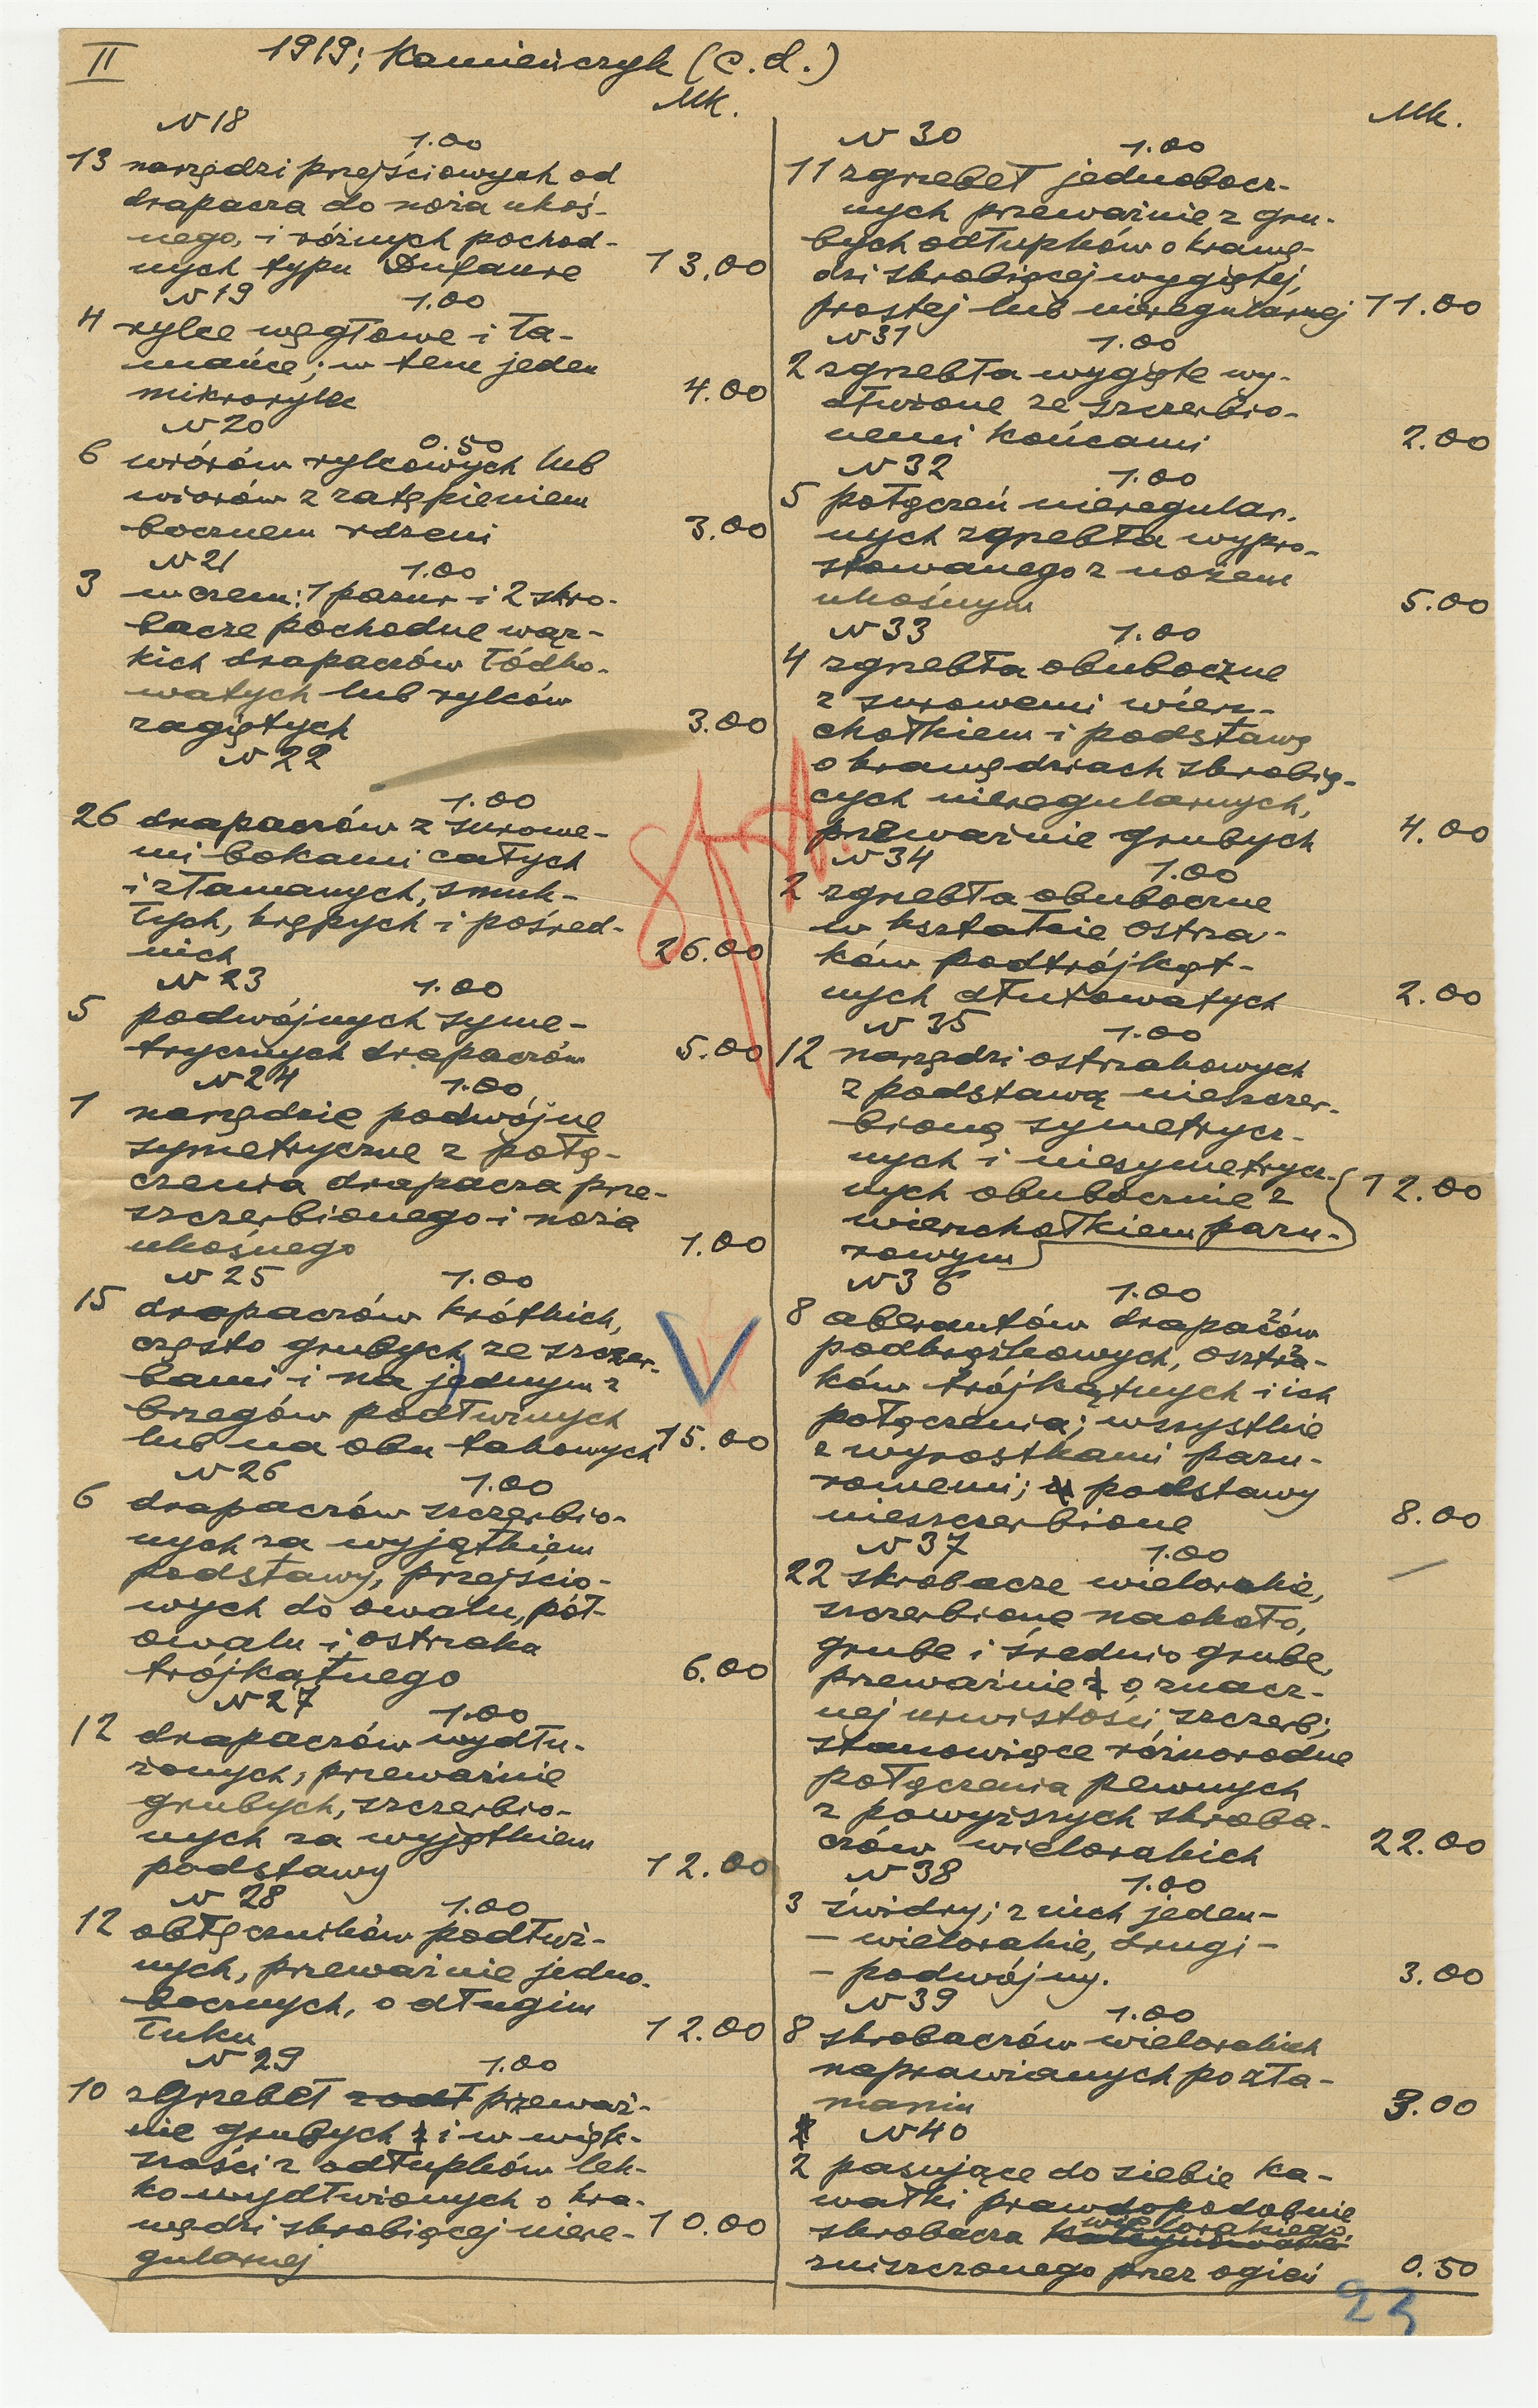 II
1919; Kamieńczyk (c.d.)
Mk.
N 18
1.00
13 narzędzi przejściowych od
drapacza do noża ukoś-
nego, i różnych pochod-
nych typu Dufaure 13.00
N 19
1.00
4 rylce węgłowe i ła-
mańce; w tem jeden
mikrorylec 4.00
N 20
0.50
6 wiórów rylcowych lub
wiórów z zatępieniem
bocznem rdzeni 3.00
N 21
1.00
3 w czem: 1 pazur i 2 skro-
bacze pochodne wąz-
kich drapaczów łódko-
watych lub rylców
zagiętych 3.00
N 22
1.00
26 drapaczów z surowe-
mi bokami całych
i złamanych, smuk-
łych, krępych i pośred-
nich 26.00
N 23
1.00
5 podwójnych syme-
trycznych drapaczów 5.00
N 24
1.00
1 narzędzie podwójne
symetryczne z połą-
czenia drapacza prze-
szczerbionego i noża
ukośnego 1.00
N 25
1.00
15 drapaczów krótkich,
często grubych ze szczer-
bami i na jednym z
brzegów podłużnych
lub na obu takowych 15.00
N 26
1.00
6 drapaczów szczerbio-
nych za wyjątkiem
podstawy, przejścio-
wych do owalu, pół-
owalu i ostrzaka
trójkątnego 6.00
N 27
1.00
12 drapaczów wydłu-
żonych, przeważnie
grubych, szczerbio-
nych za wyjątkiem
podstawy 12.00
N 28
1.00
12 obłęczników podłuż-
nych, przeważnie jedno-
bocznych, o długim
łuku 12.00
N 29
1.00
10 zgrzebeł przeważ-
nie grubych i w więk-
szości z odłupków lek-
ko wydłużonych o kra-
wędzi skrobiącej niere- 10.00
gularnej
Mk.
N 30
1.00
11 zgrzebeł jednobocz-
nych przeważnie z gru-
bych odłupków o krawę-
dzi skrobiącej wygiętej,
prostej lub nieregularnej 11.00
N 31
1.00
2 zgrzebła wygięte wy-
dłużone ze szczerbio-
nemi końcami 2.00
N 32
1.00
5 połączeń nieregular.
nych zgrzebła wypro-
stowanego z nożem
ukośnym 5.00
N 33
1.00
4 zgrzebła obuboczne
z surowemi wierz-
chołkiem i podstawą
o krawędziach skrobią-
cych nieregularnych,
przeważnie grubych 4.00
N 34
1.00
2 zgrzebła obuboczne
w kształcie ostrza-
ków podtrójkąt-
nych dłutowatych 2.00
N 35
1.00
12 narzędzi ostrzakowych
z podstawą nieszczer-
bioną symetrycz-
nych i niesymetrycz-
nych obubocznie z 12.00
wierzchołkiem pazu-
rowym
N 36
1.00
8 aberantów drapaczów
podkrążkowych, ostrza-
ków trójkątnych i ich
połączenia; wszystkie
z wyrostkami pazu-
rowemi; podstawy
nieszczerbione 8.00
N 37
1.00
22 skrobacze wielorakie,
szczerbione naokoło,
grube i średnio grube,
przeważnie o znacz-
nej urwistości szczerb;
stanowiące różnorodne
połączenia pewnych
z powyższych skroba-
czów wielorakich 22.00
N 38
1.00
3 świdry; z nich jeden-
- wielorakie, drugi -
- podwójny. 3.00
N 39
1.00
8 skrobaczów wielorakich
naprawianych po zła-
maniu 3.00
N 40
2 pasujące do siebie ka-
wałki prawdopodobnie
wielorakiego,
skrobacza
zniszczonego przez ogień 0.50
23